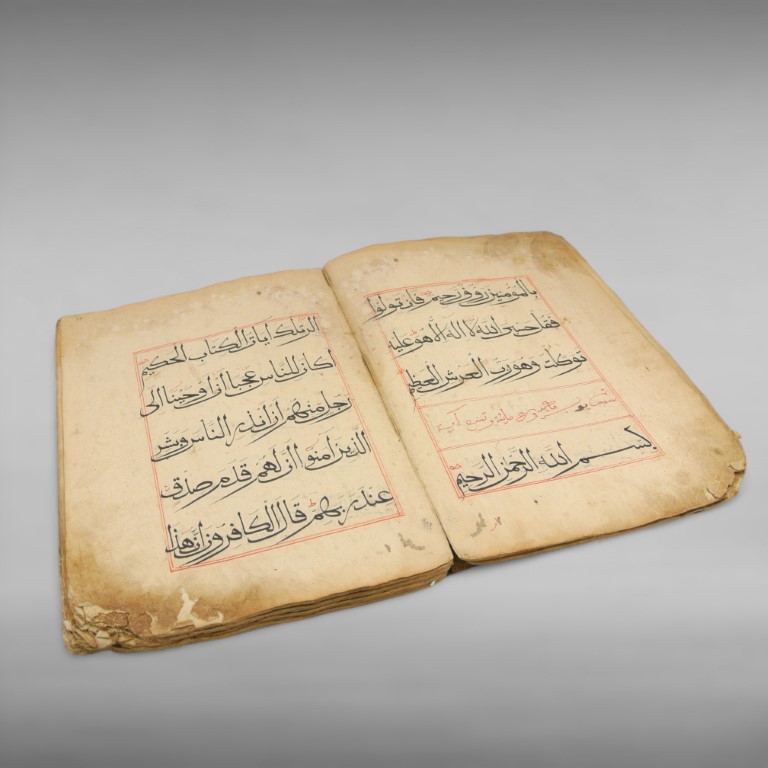 بالمؤمنين روف رحيم فان تولوا
فقل حسبي الله لا اله الا هو عليه
توكلت وهو رب العرش العظيم
بسم الله الرحمن الرحيم
الر تلك ايات الكتاب الحكيم
اكان للناس عجبا ان اوحينا الى
رجل منهم ان انذر الناس وبشر
الذين امنوا ان لهم قدم صدق
عند ربهم قال الكافرون ان هذا